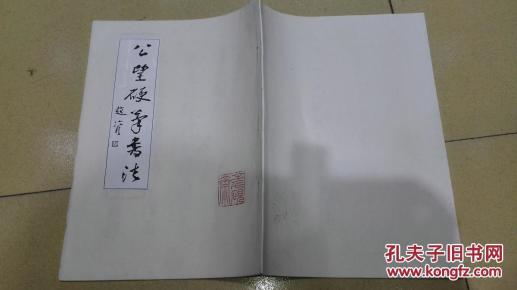 公望硬笔书法
孔夫子旧书网
www.kongfz.com